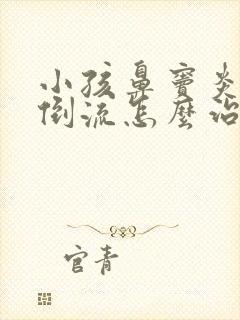 小孩鼻窦炎
倒流怎麼治
官青